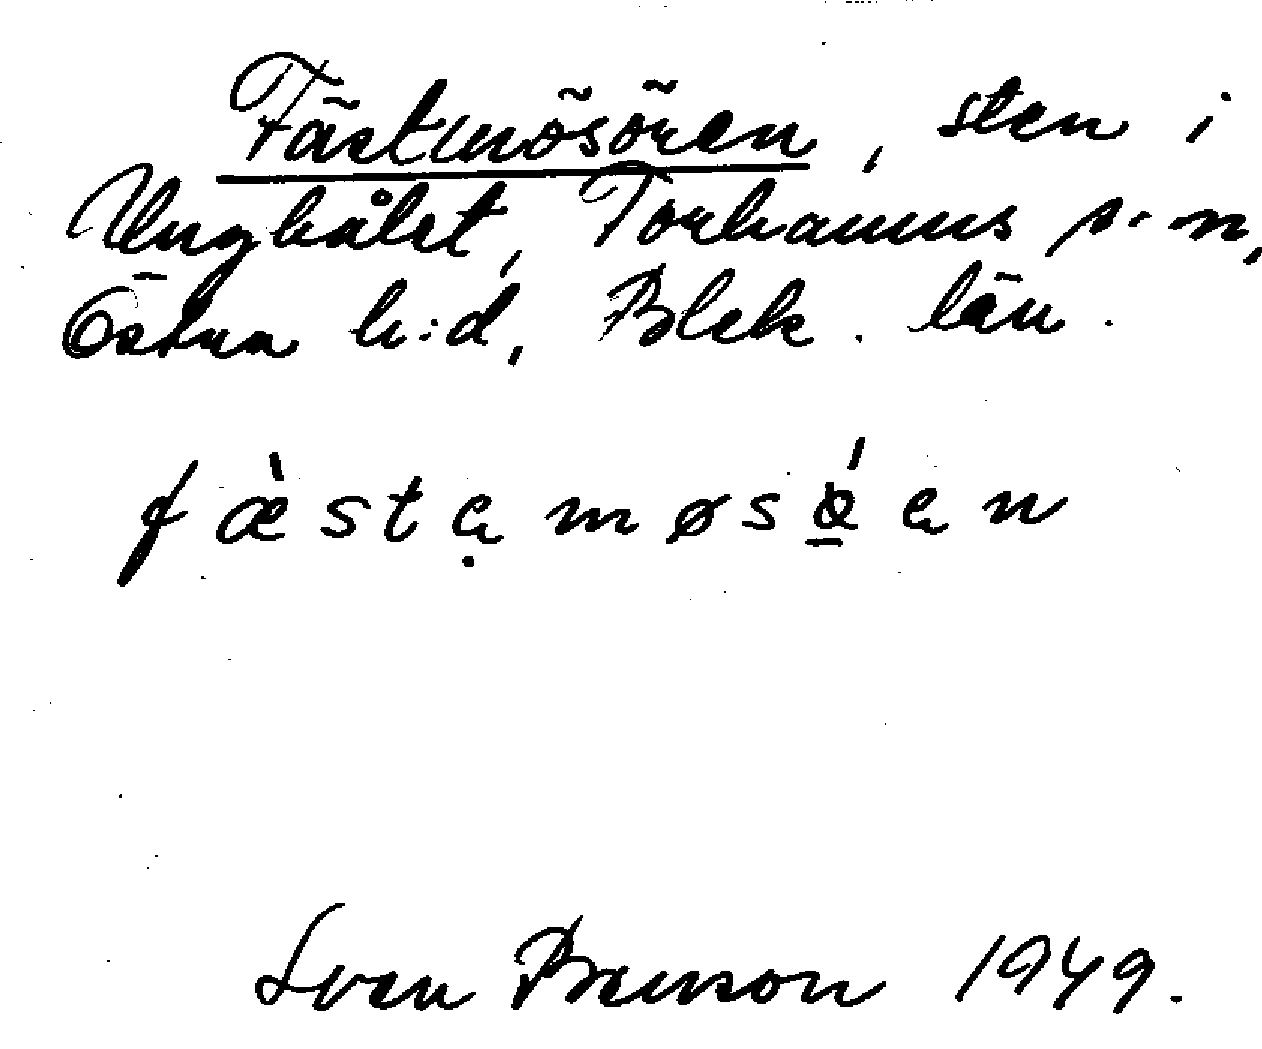 Fästmösören, sten i
Ungkålst, Torhamns s-n,
Östra h:d, Blek. län.
fæ̀stạmøsǿ̱ən
Sven Benson 1949.